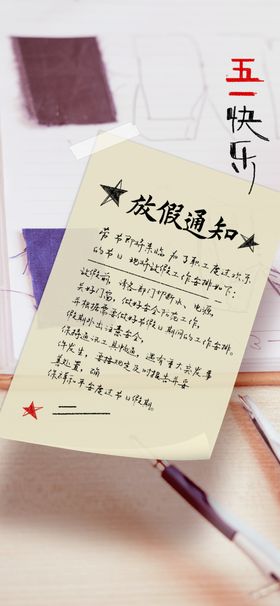 五一
快乐
放假通知
节即将来临 为了职工度过欢乐
的节日 现将放假工作安排如下：
放假前，请各部门切断水、电源，
关好门窗，做好安全防范工作，
并根据需要做好节假日期间的工作安排。
假期外出注意安全，
保持通讯工具畅通，遇有重大突发事
件发生，要按规定及时报告并妥
善处置，确
保祥和平安度过节日假期。